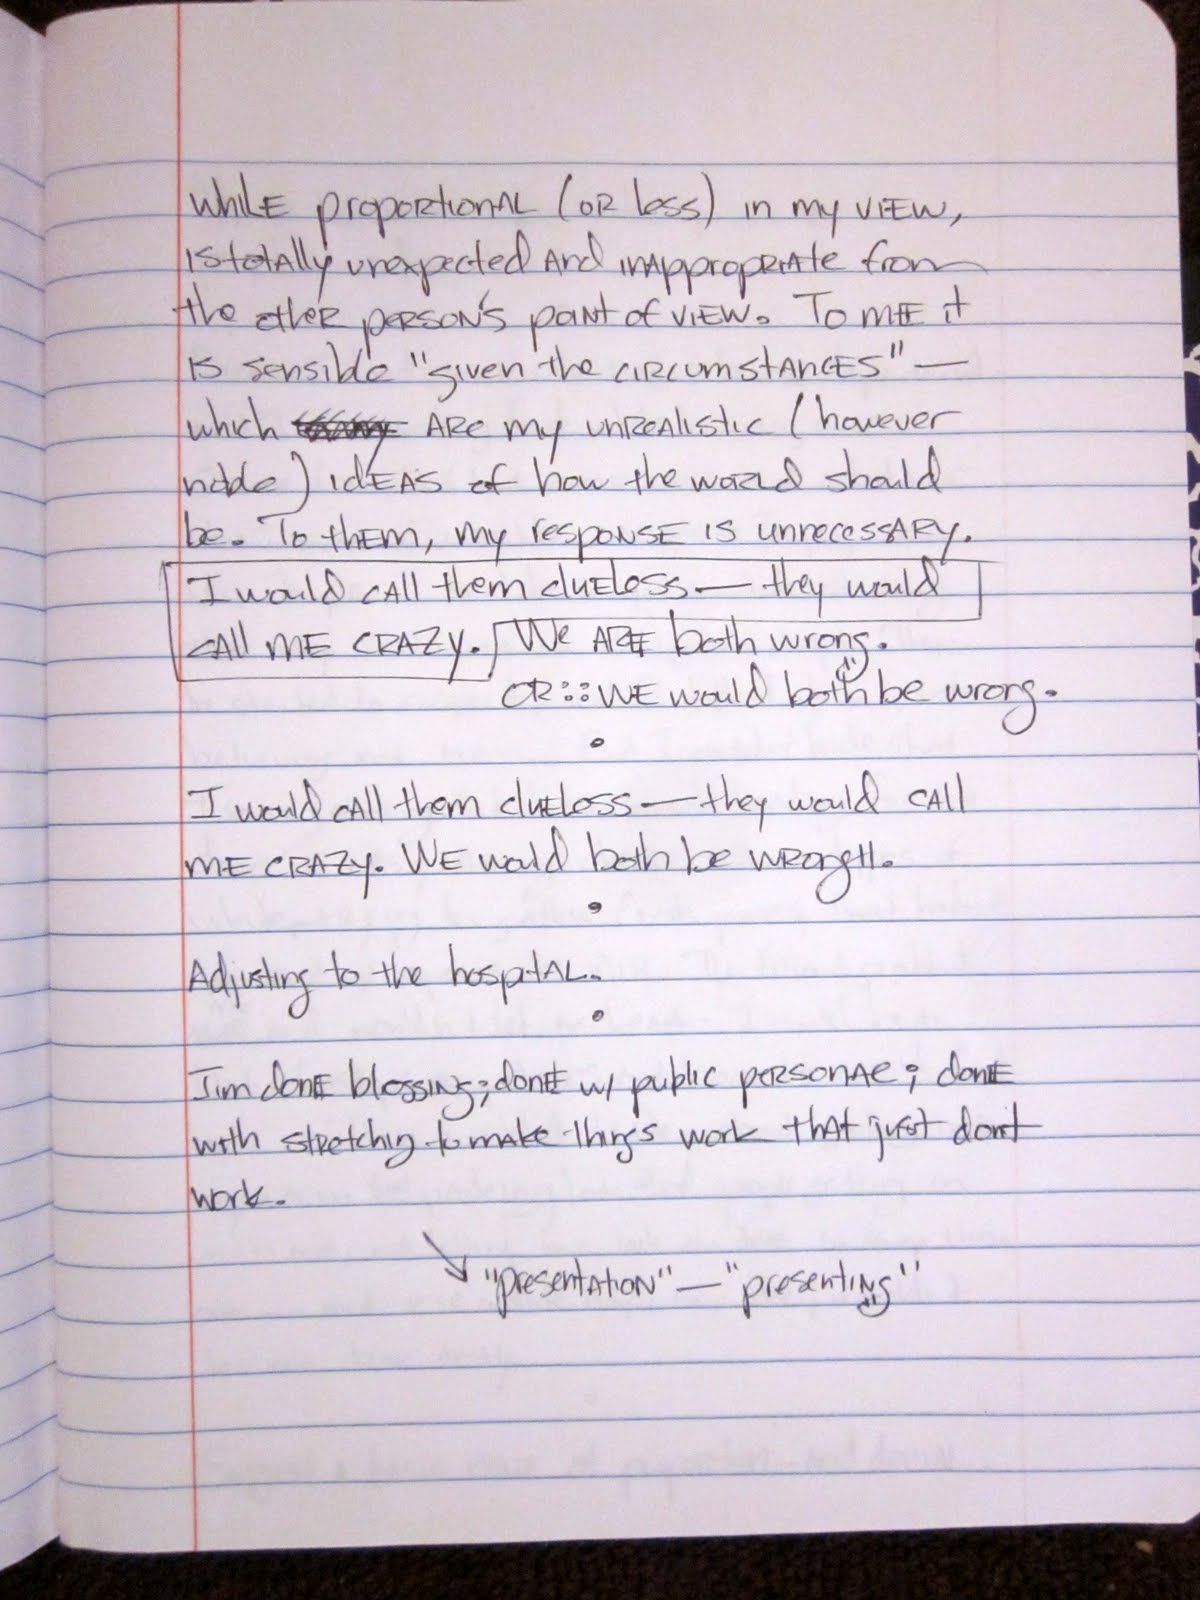 While proportional (or less) in my view,
is totally unexpected and inappropriate from
the other person's point of view. To me it
is sensible "given the circumstances" —
which are my unrealistic (however
noble) ideas of how the world should
be. To them, my response is unnecessary.
I would call them clueless — they would
call me crazy. We are both wrong.
OR::: we would both be wrong.
•
I would call them clueless — they would call
me crazy. We would both be wrong.
•
Adjusting to the hospital.
•
I'm done blessing; done w/ public personae; done
with stretching to make things work that just don't
work.
"presentation" — "presenting"